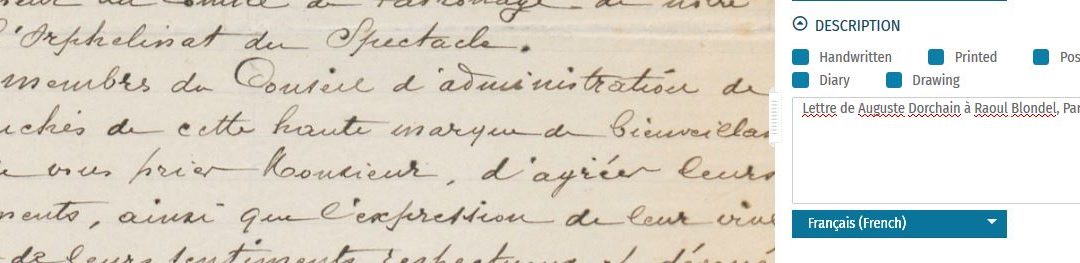 au Comité de Patronage de notre
l'Orphelinat du Spectacle.
membres du Conseil d'administration de
uchés de cette haute marque de bienveillan
vous prier Monsieur, d'agréer leurs
ments, ainsi que l'expression de leur vive
de leurs sentiments respectueux et
DESCRIPTION
Handwritten Printed Pos
Diary Drawing
Lettre de Auguste Dorchain à Raoul Blondel, Par
Français (French)